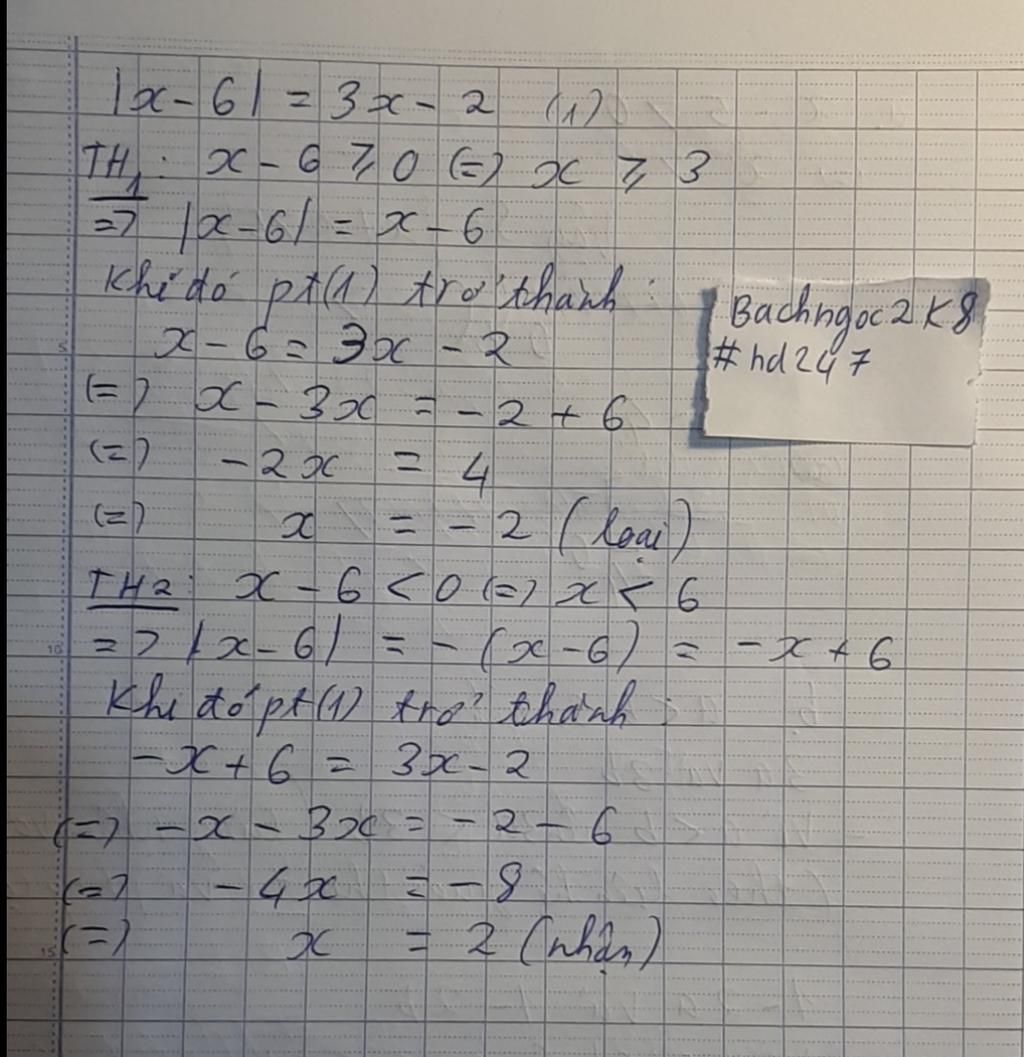 |x - 6| = 3x - 2 (1)
TH1: x - 6 ≥ 0 (=) x ≥ 3
=> |x - 6| = x - 6
Khi đó pt(1) trở thành:
x - 6 = 3x - 2
(=) x - 3x = -2 + 6
(=) -2x = 4
(=) x = -2 (loại)
TH2: x - 6 < 0 (=) x < 6
=> |x - 6| = -(x - 6) = -x + 6
Khi đó pt(1) trở thành:
-x + 6 = 3x - 2
(=) -x - 3x = -2 - 6
(=) -4x = -8
(=) x = 2 (nhận)
Bachngoc2K8
#hd247
5
10
15